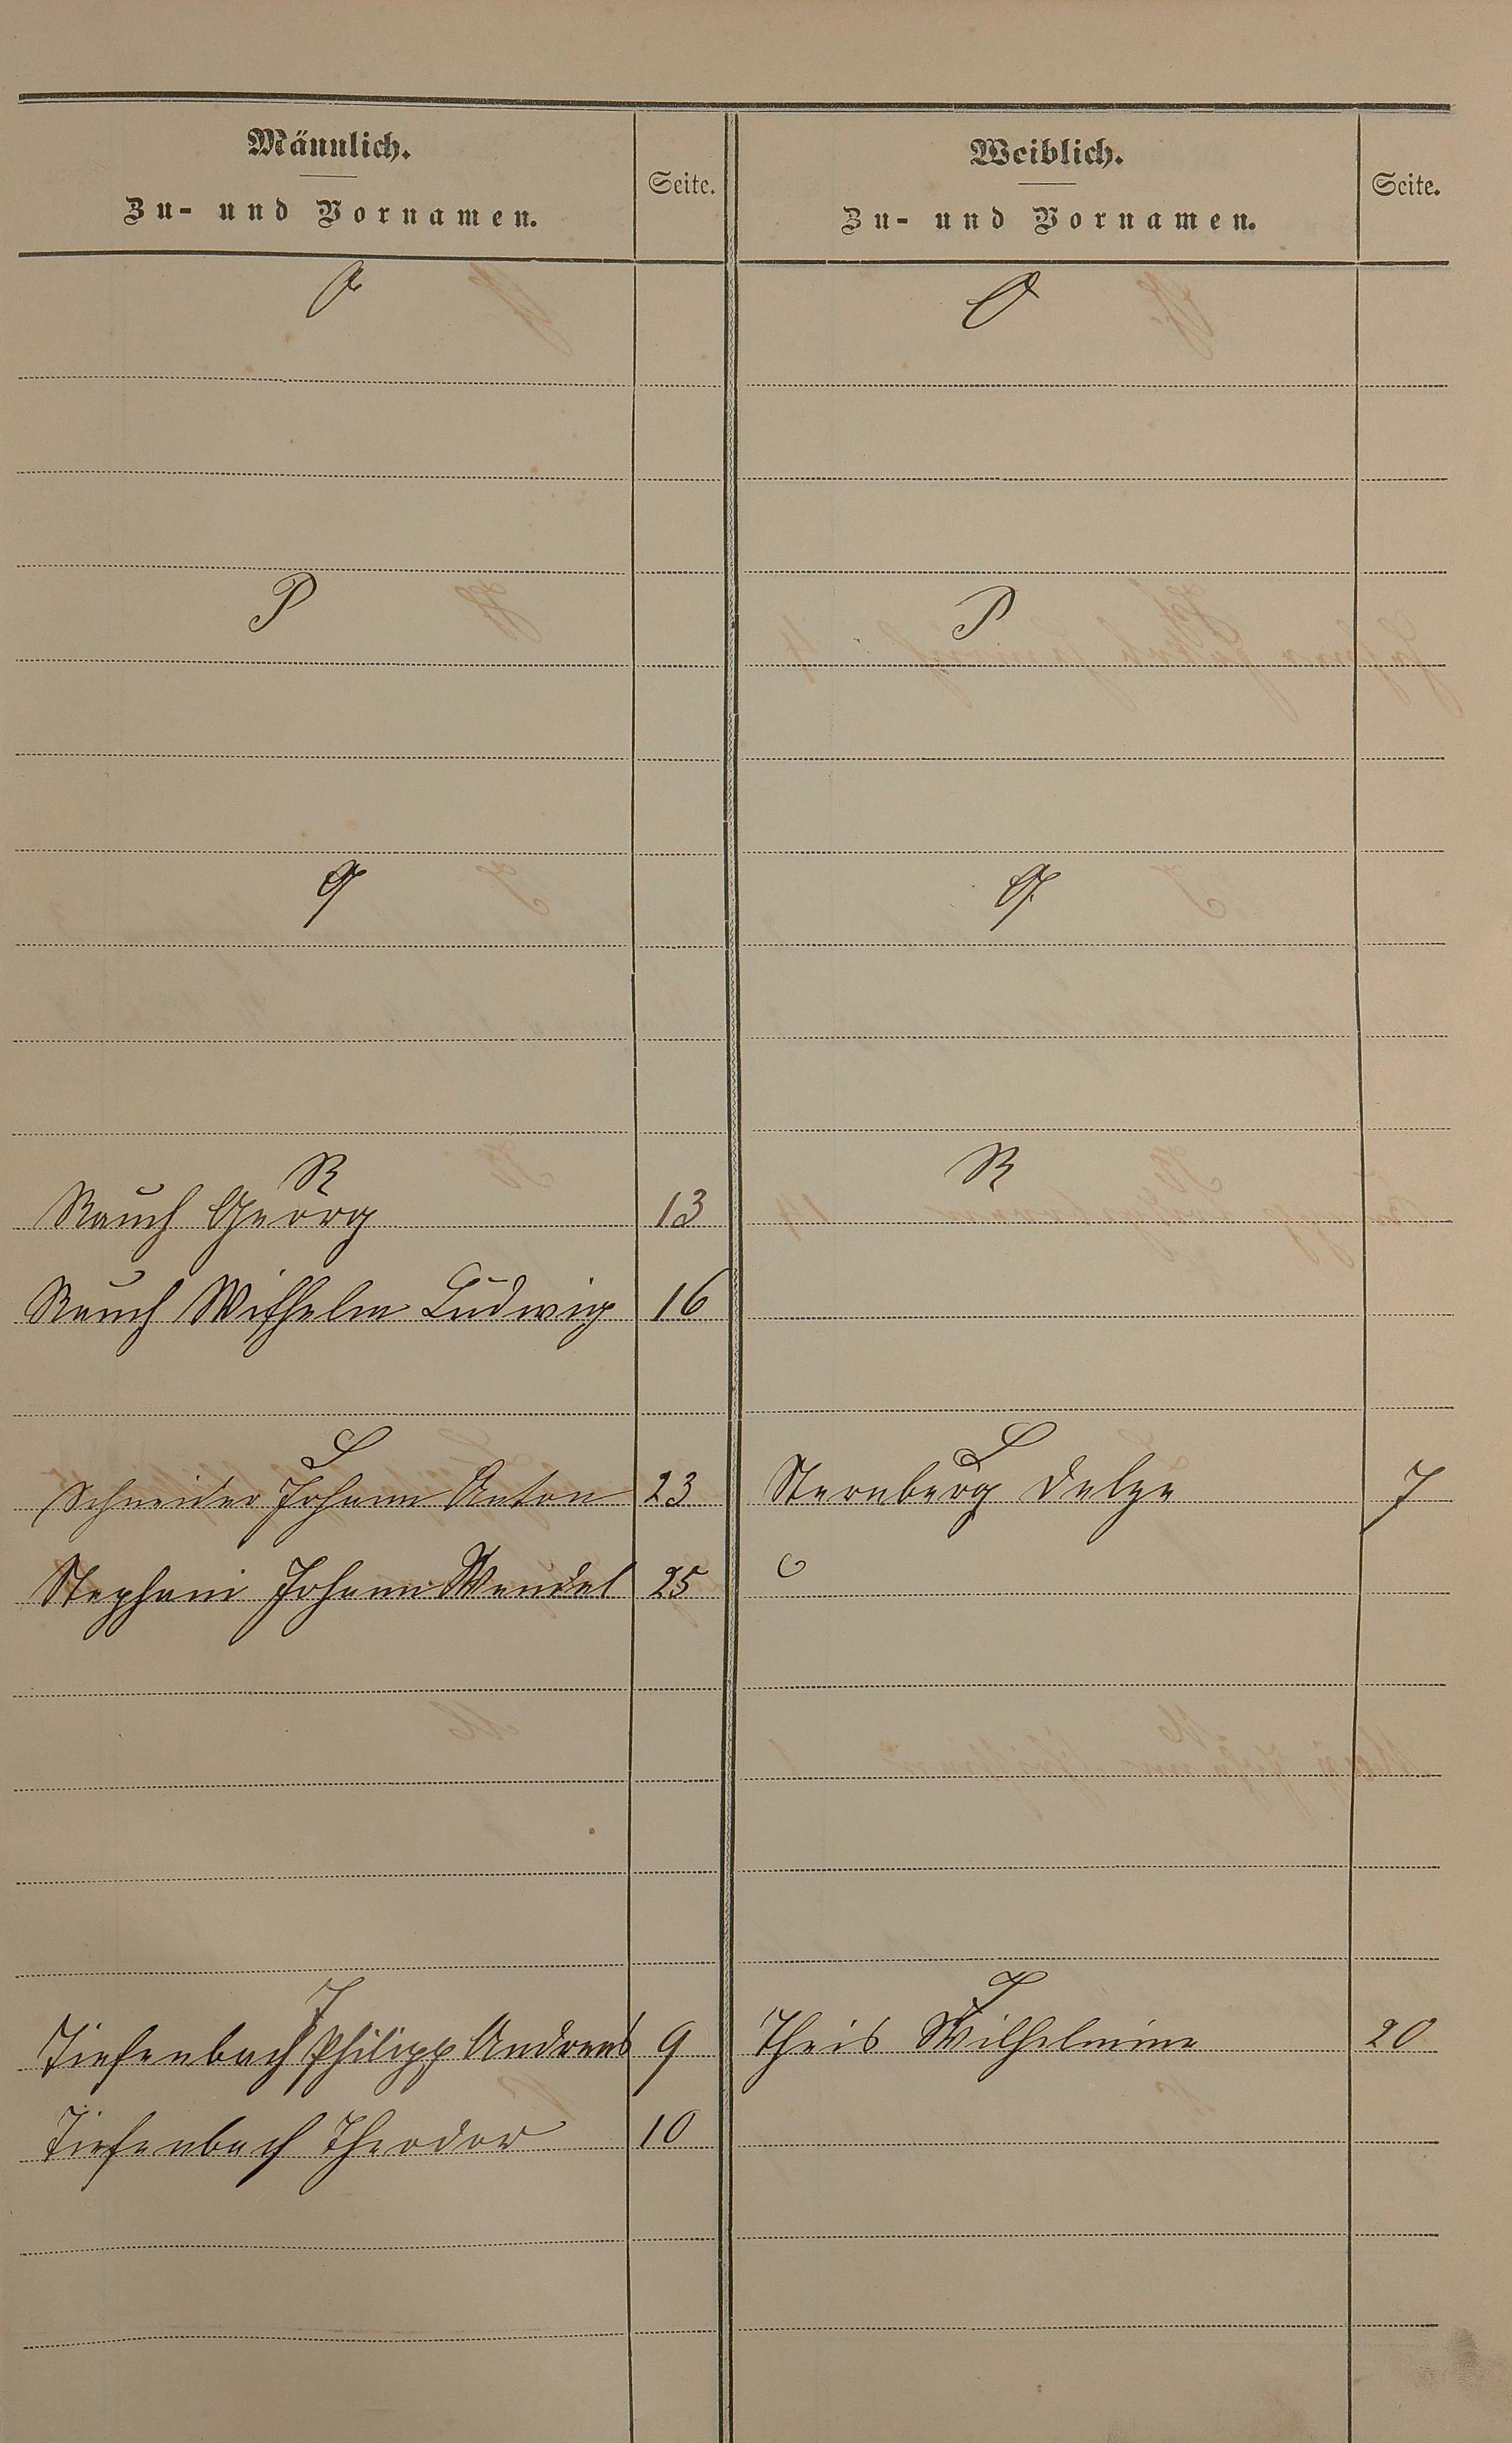 Männlich.
Zu- und Vornamen.
Seite.
Weiblich.
Zu- und Vornamen.
Seite.
O
O
P
P
Q
Q
R
R
Rauch Georg 13
Rauch Wilhelm Ludwig 16
S
S
Schneider Johann Anton 23
Sternberg 7
Stephani Johann Wendel 25
T
T
Tiefenbach Philipp Andreas 9
Theis Wilhelmine 20
Tiefenbach Theodor 10